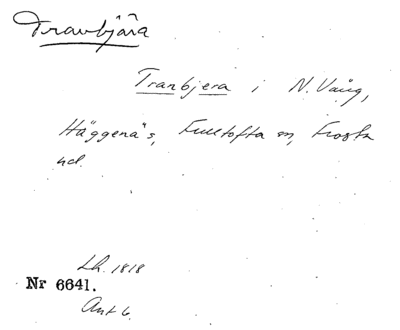 Tranbjära
Tranbjera i N. Vång,
Häggenäs, Fulltofta sn, Frosta
hd.
Lh. 1818
Nr 6641.
Ant 6.